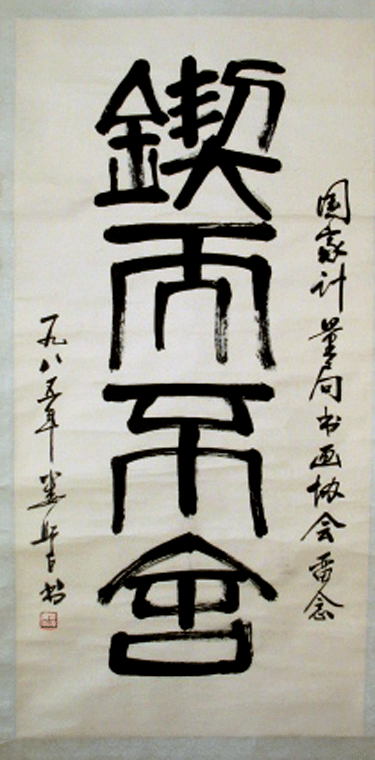 国家计量局书画协会留念
鍥而不舍
一九八五年 娄师白书